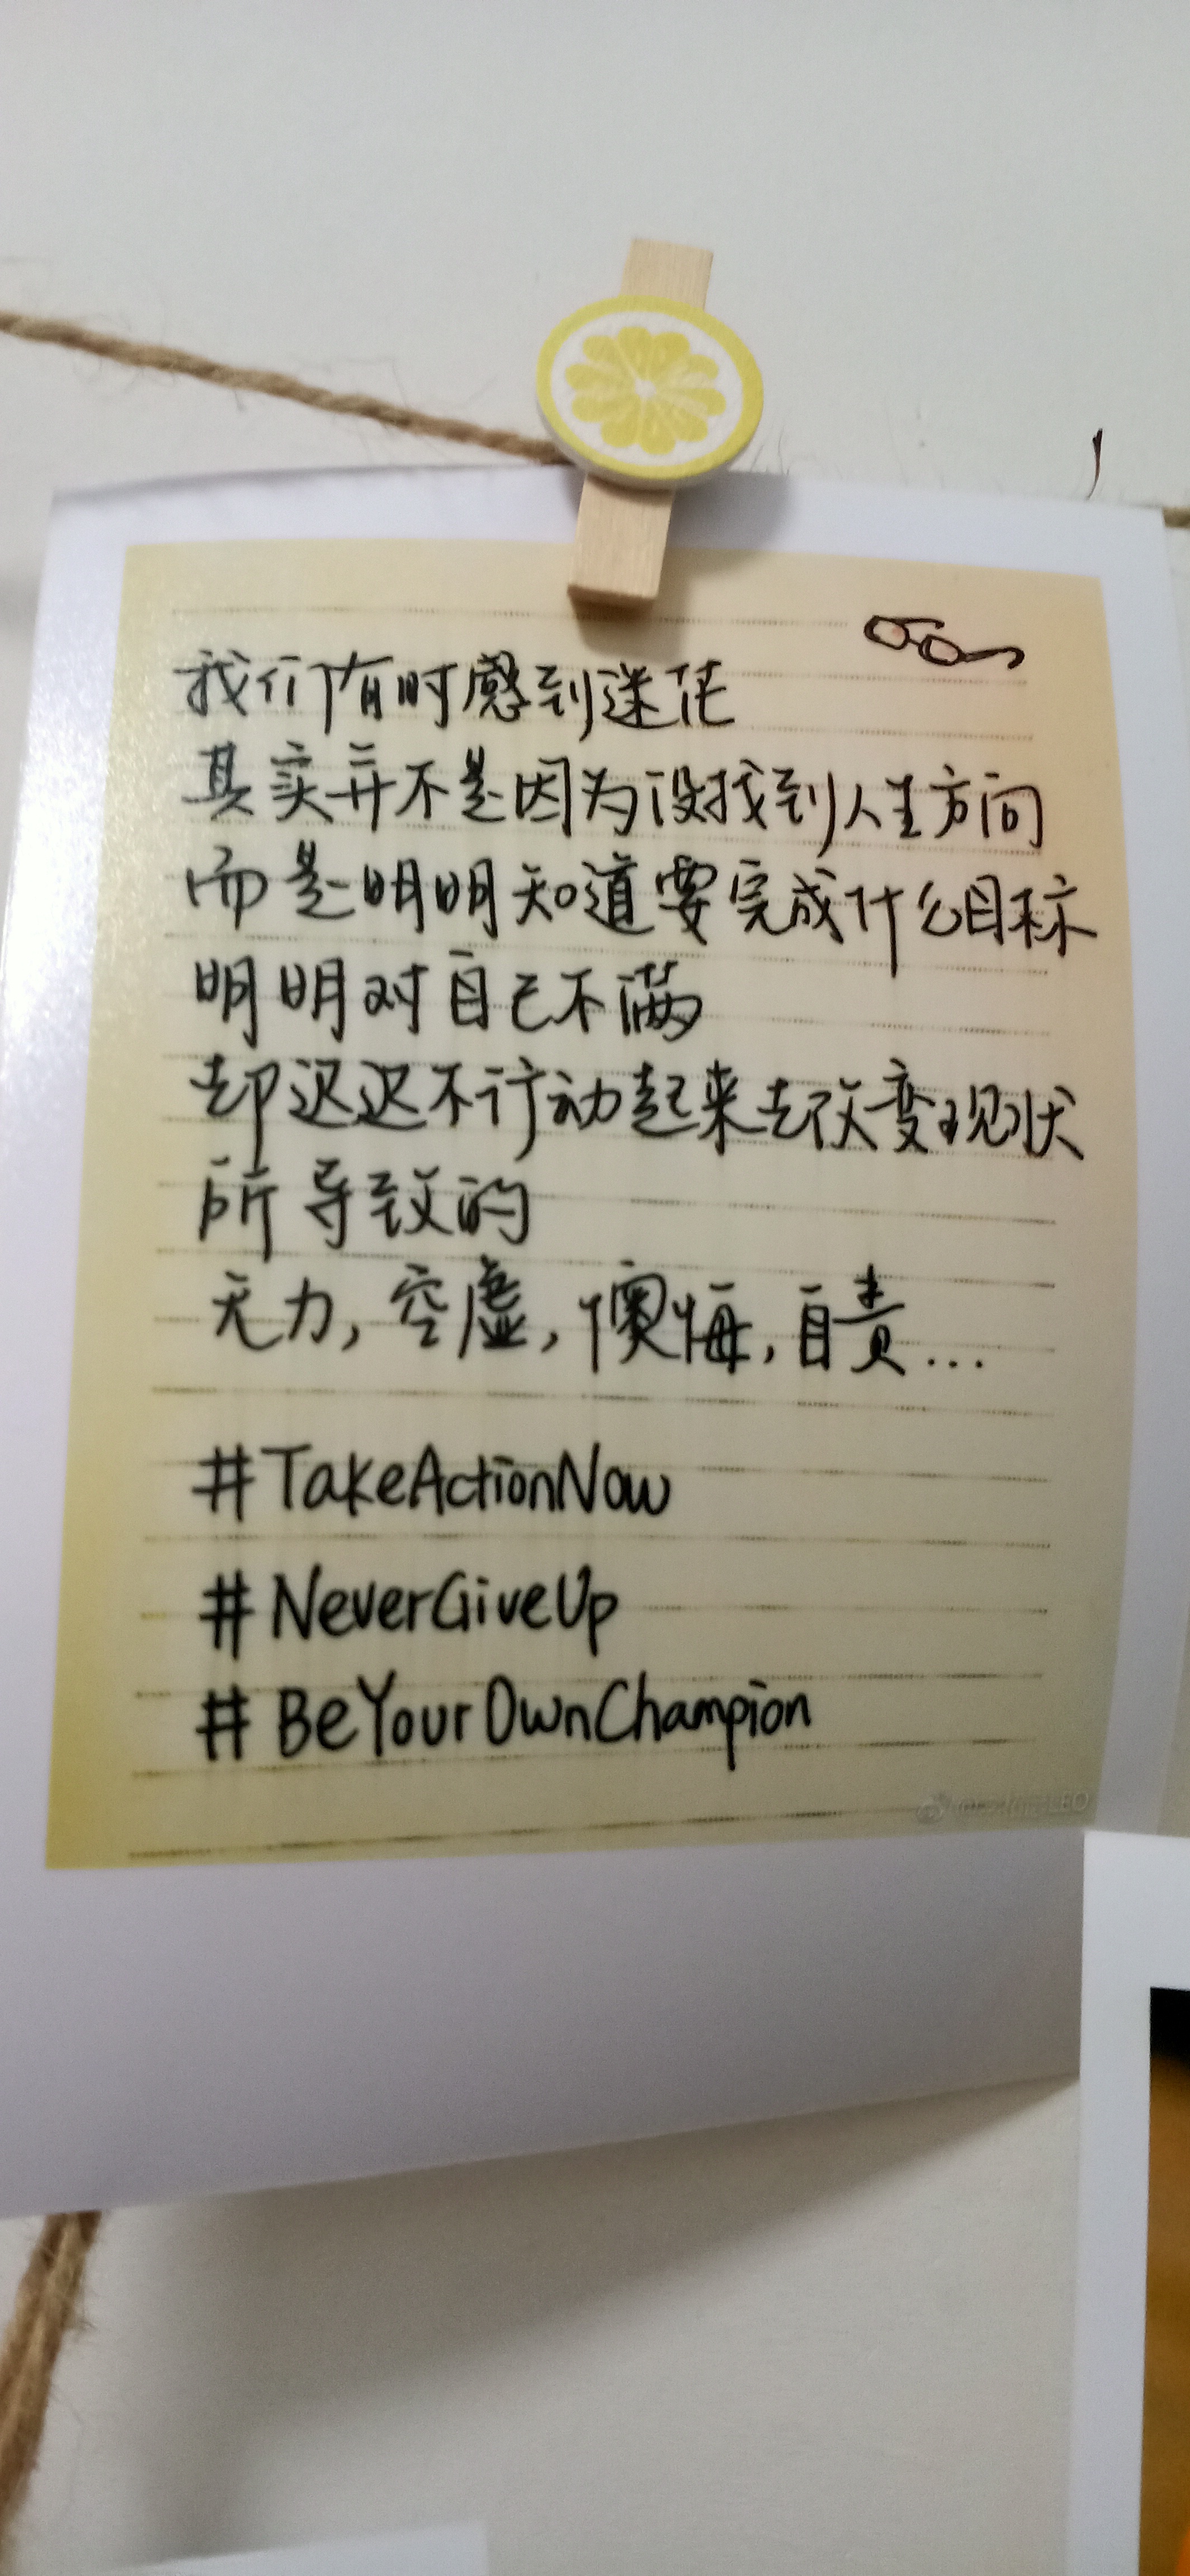 我们有时感到迷茫
其实并不是因为没找到人生方向
而是明明知道要完成什么目标
明明对自己不满
却迟迟不行动起来去改变现状
所导致的
无力,空虚,懊悔,自责...
#TakeActionNow
#NeverGiveUp
#BeYourOwnChampion